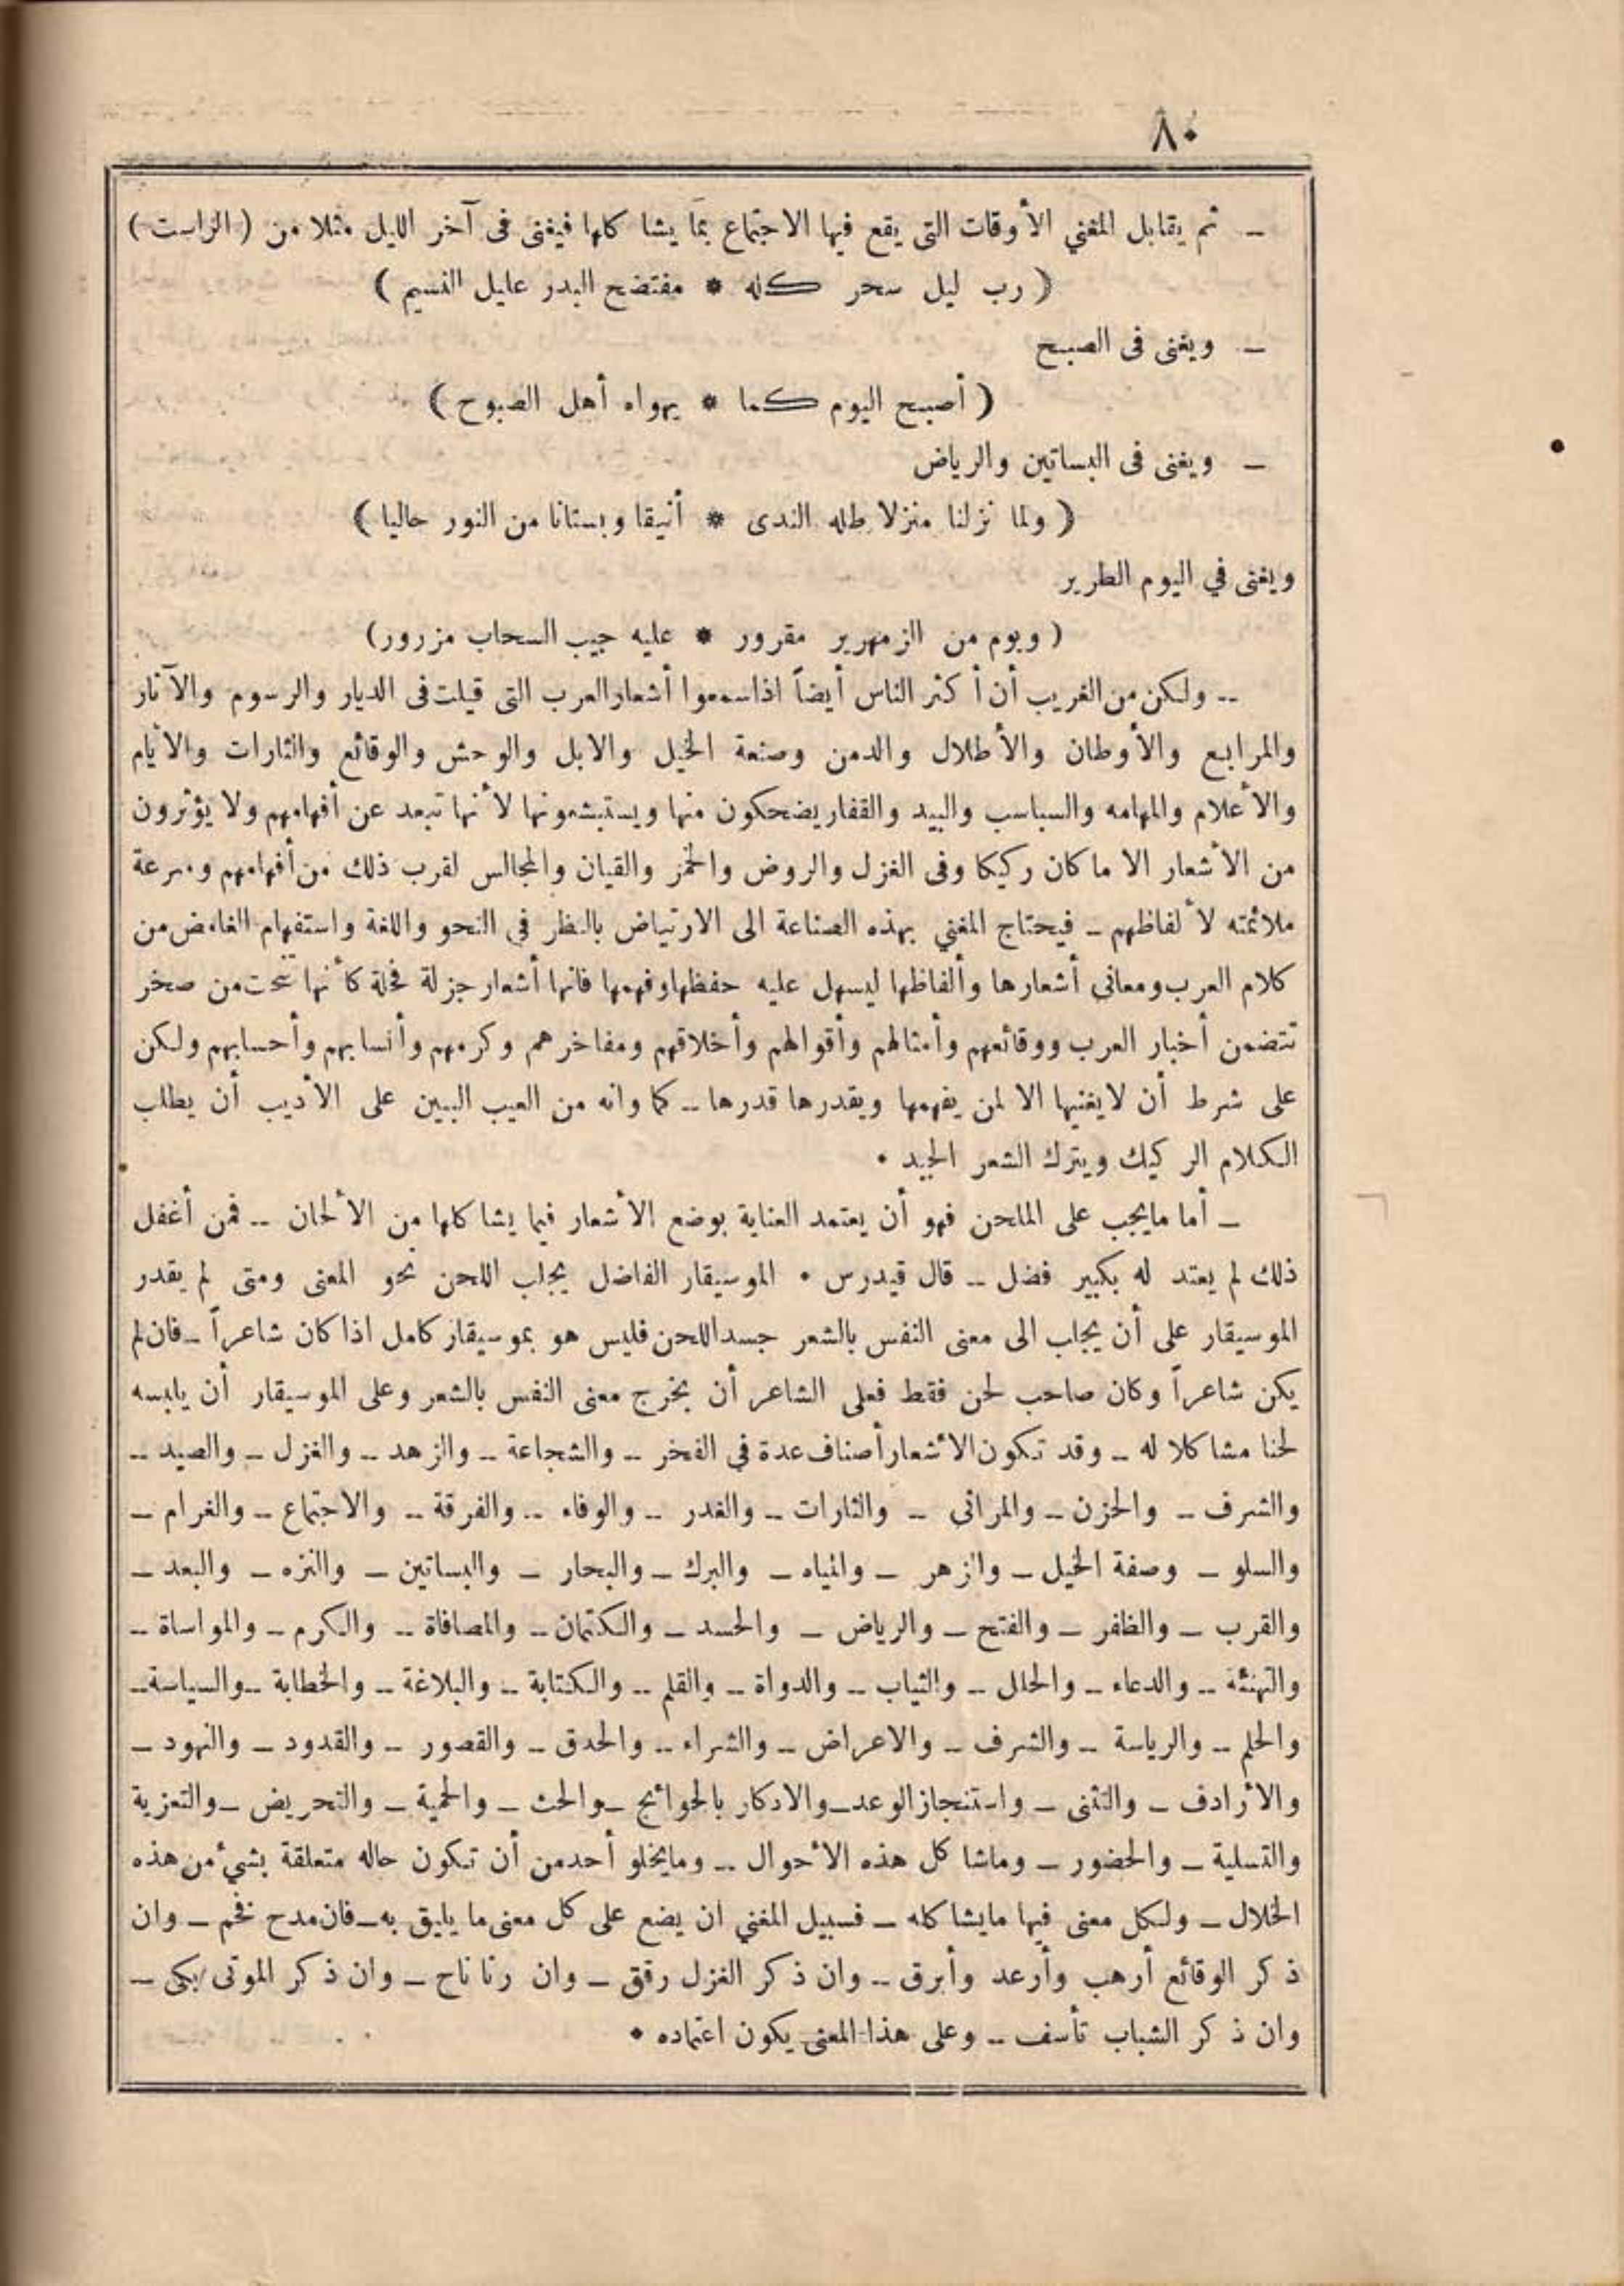 ٨٠
ـ ثم يقابل المغني الأوقات التى يقع فيها الاجتماع بما يشاكلها فيغنى فى آخر الليل مثلا من (الراست)
(رب ليل سحر كله * مفتضح البدر عليل النسيم)
ـ ويغنى فى الصبح
(أصبح اليوم كما * يهواه أهل الصبوح)
ـ ويغنى فى البساتين والرياض
(ولما نزلنا منزلا طله الندى * أنيقا وبستانا من النور حاليا)
ويغنى في اليوم الطرير
(ويوم من الزمهرير مقرور * عليه جيب السحاب مزرور)
ـ ولكن من الغريب أن أكثر الناس أيضاً اذا سمعوا أشعار العرب التى قيلت فى الديار والرسوم والآثار
والمرابع والأوطان والأطلال والدمن وصنعة الخيل والابل والوحش والوقائع والثارات والأيام
والأعلام والمهامه والسباسب والبيد والقفار يضحكون منها ويستبشعونها لأنها تبعد عن أفهامهم ولا يؤثرون
من الأشعار الا ما كان ركيكا وفى الغزل والروض والخمر والقيان والمجالس لقرب ذلك من أفهامهم وسرعة
ملائمته لألفاظهم ـ فيحتاج المغني بهذه الصناعة الى الارتياض بالنظر في النحو واللغة واستفهام الغامض من
كلام العرب ومعاني أشعارها وألفاظها ليسهل عليه حفظها وفهمها فانها أشعار جزلة فحلة كأنها نحتت من صخر
تتضمن أخبار العرب ووقائعهم وأمثالهم وأقوالهم وأخلاقهم ومفاخرهم وكرمهم وأنسابهم وأحسابهم ولكن
على شرط أن لا يغنيها الا لمن يفهمها ويقدرها قدرها ـ كما وانه من العيب البين على الأديب أن يطلب
الكلام الركيك ويترك الشعر الجيد ٠
ـ أما ما يجب على الملحن فهو أن يعتمد العناية بوضع الأشعار فيما يشاكلها من الألحان ـ فمن أغفل
ذلك لم يعتد له بكبير فضل ـ قال قيدرس ٠ الموسيقار الفاضل يجلب اللحن نحو المعنى ومتى لم يقدر
الموسيقار على أن يجلب الى معنى النفس بالشعر جسد اللحن فليس هو بموسيقار كامل اذا كان شاعراً ـ فان لم
يكن شاعراً وكان صاحب لحن فقط فعلى الشاعر أن يخرج معنى النفس بالشعر وعلى الموسيقار أن يلبسه
لحنا مشاكلا له ـ وقد تكون الأشعار أصناف عدة في الفخر ـ والشجاعة ـ والزهد ـ والغزل ـ والصيد ـ
والشرف ـ والحزن ـ والمراثى ـ والثارات ـ والغدر ـ والوفاء ـ والفرقة ـ والاجتماع ـ والغرام ـ
والسلو ـ وصفة الخيل ـ والزهر ـ والمياه ـ والبرك ـ والبحار ـ والبساتين ـ والنزه ـ والبعد ـ
والقرب ـ والظفر ـ والفتح ـ والرياض ـ والحسد ـ والكتمان ـ والمصافاة ـ والكرم ـ والمواساة ـ
والتهنئة ـ والدعاء ـ والحلل ـ والثياب ـ والدواة ـ والقلم ـ والكتابة ـ والبلاغة ـ والخطابة ـ والسياسة ـ
والحلم ـ والرياسة ـ والشرف ـ والاعراض ـ والشراء ـ والحدق ـ والقصور ـ والقدود ـ والنهود ـ
والأرادف ـ والتثنى ـ واستنجاز الوعد ـ والادكار بالحوائج ـ والحث ـ والحمية ـ والتحريض ـ والتعزية
والتسلية ـ والحضور ـ وماشاكل هذه الأحوال ـ وما يخلو أحد من أن تكون حاله متعلقة بشيء من هذه
الخلال ـ ولكل معنى فيها ما يشاكله ـ فسبيل المغني ان يضع على كل معنى ما يليق به ـ فان مدح فخم ـ وان
ذكر الوقائع أرهب وأرعد وأبرق ـ وان ذكر الغزل رقق ـ وان رثا ناح ـ وان ذكر الموتى بكى ـ
وان ذكر الشباب تأسف ـ وعلى هذا المعنى يكون اعتماده ٠